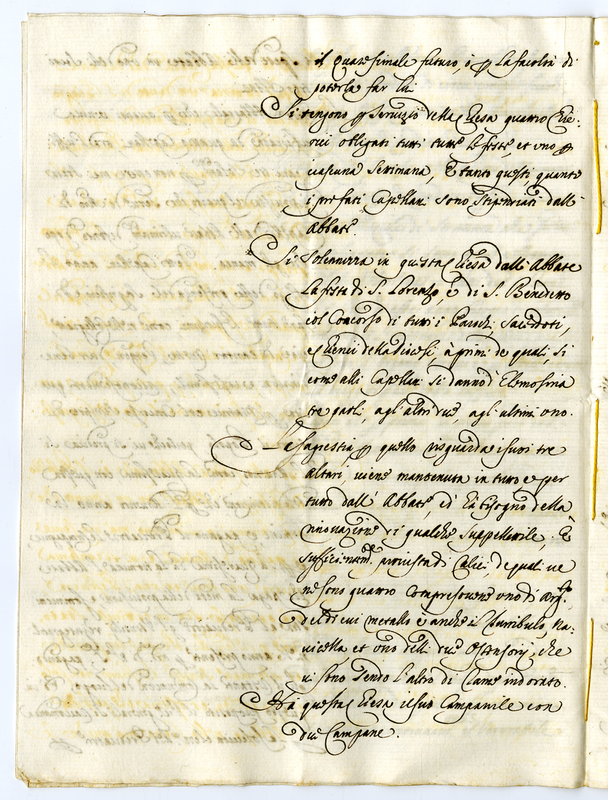 il quaresimale futuro, è p la facoltà di
poterla far lui.
Si tengono p Servizio della Chiesa quattro Chie-
rici obligati tutti tutte le feste, et uno p
ciascuna Settimana, E tanto questi quanto
i prefati Capellani sono stipendiati dall'
Abbate.
Si Solennizza in questa Chiesa dall'Abbate
la festa di S. Lorenzo, e di S. Benedetto
col Concorso di tutti i Parochi Sacerdoti,
e Chierici della Diocesi, à primi de quali, si
come alli Capellani Si danno d'Elemosina
tre paoli, agl'altri due, agl'ultimi uno.
La Sagrestia p quello risguarda i suoi tre
altari, viene mantenuta in tutto e per
tutto dall'Abbate ed hà bisogno della
rinovazione di qualche Suppellettile. È
sufficientem.te provista di Calici, de quali ve
ne sono quattro compresovene uno di Arg.to
del di cui metallo è anche il Thuribulo, Na-
vicella et uno delli due Ostensorij, che
vi sono essendo l'altro di Rame indorato.
Hà questa Chiesa il suo Campanile con
due Campane.